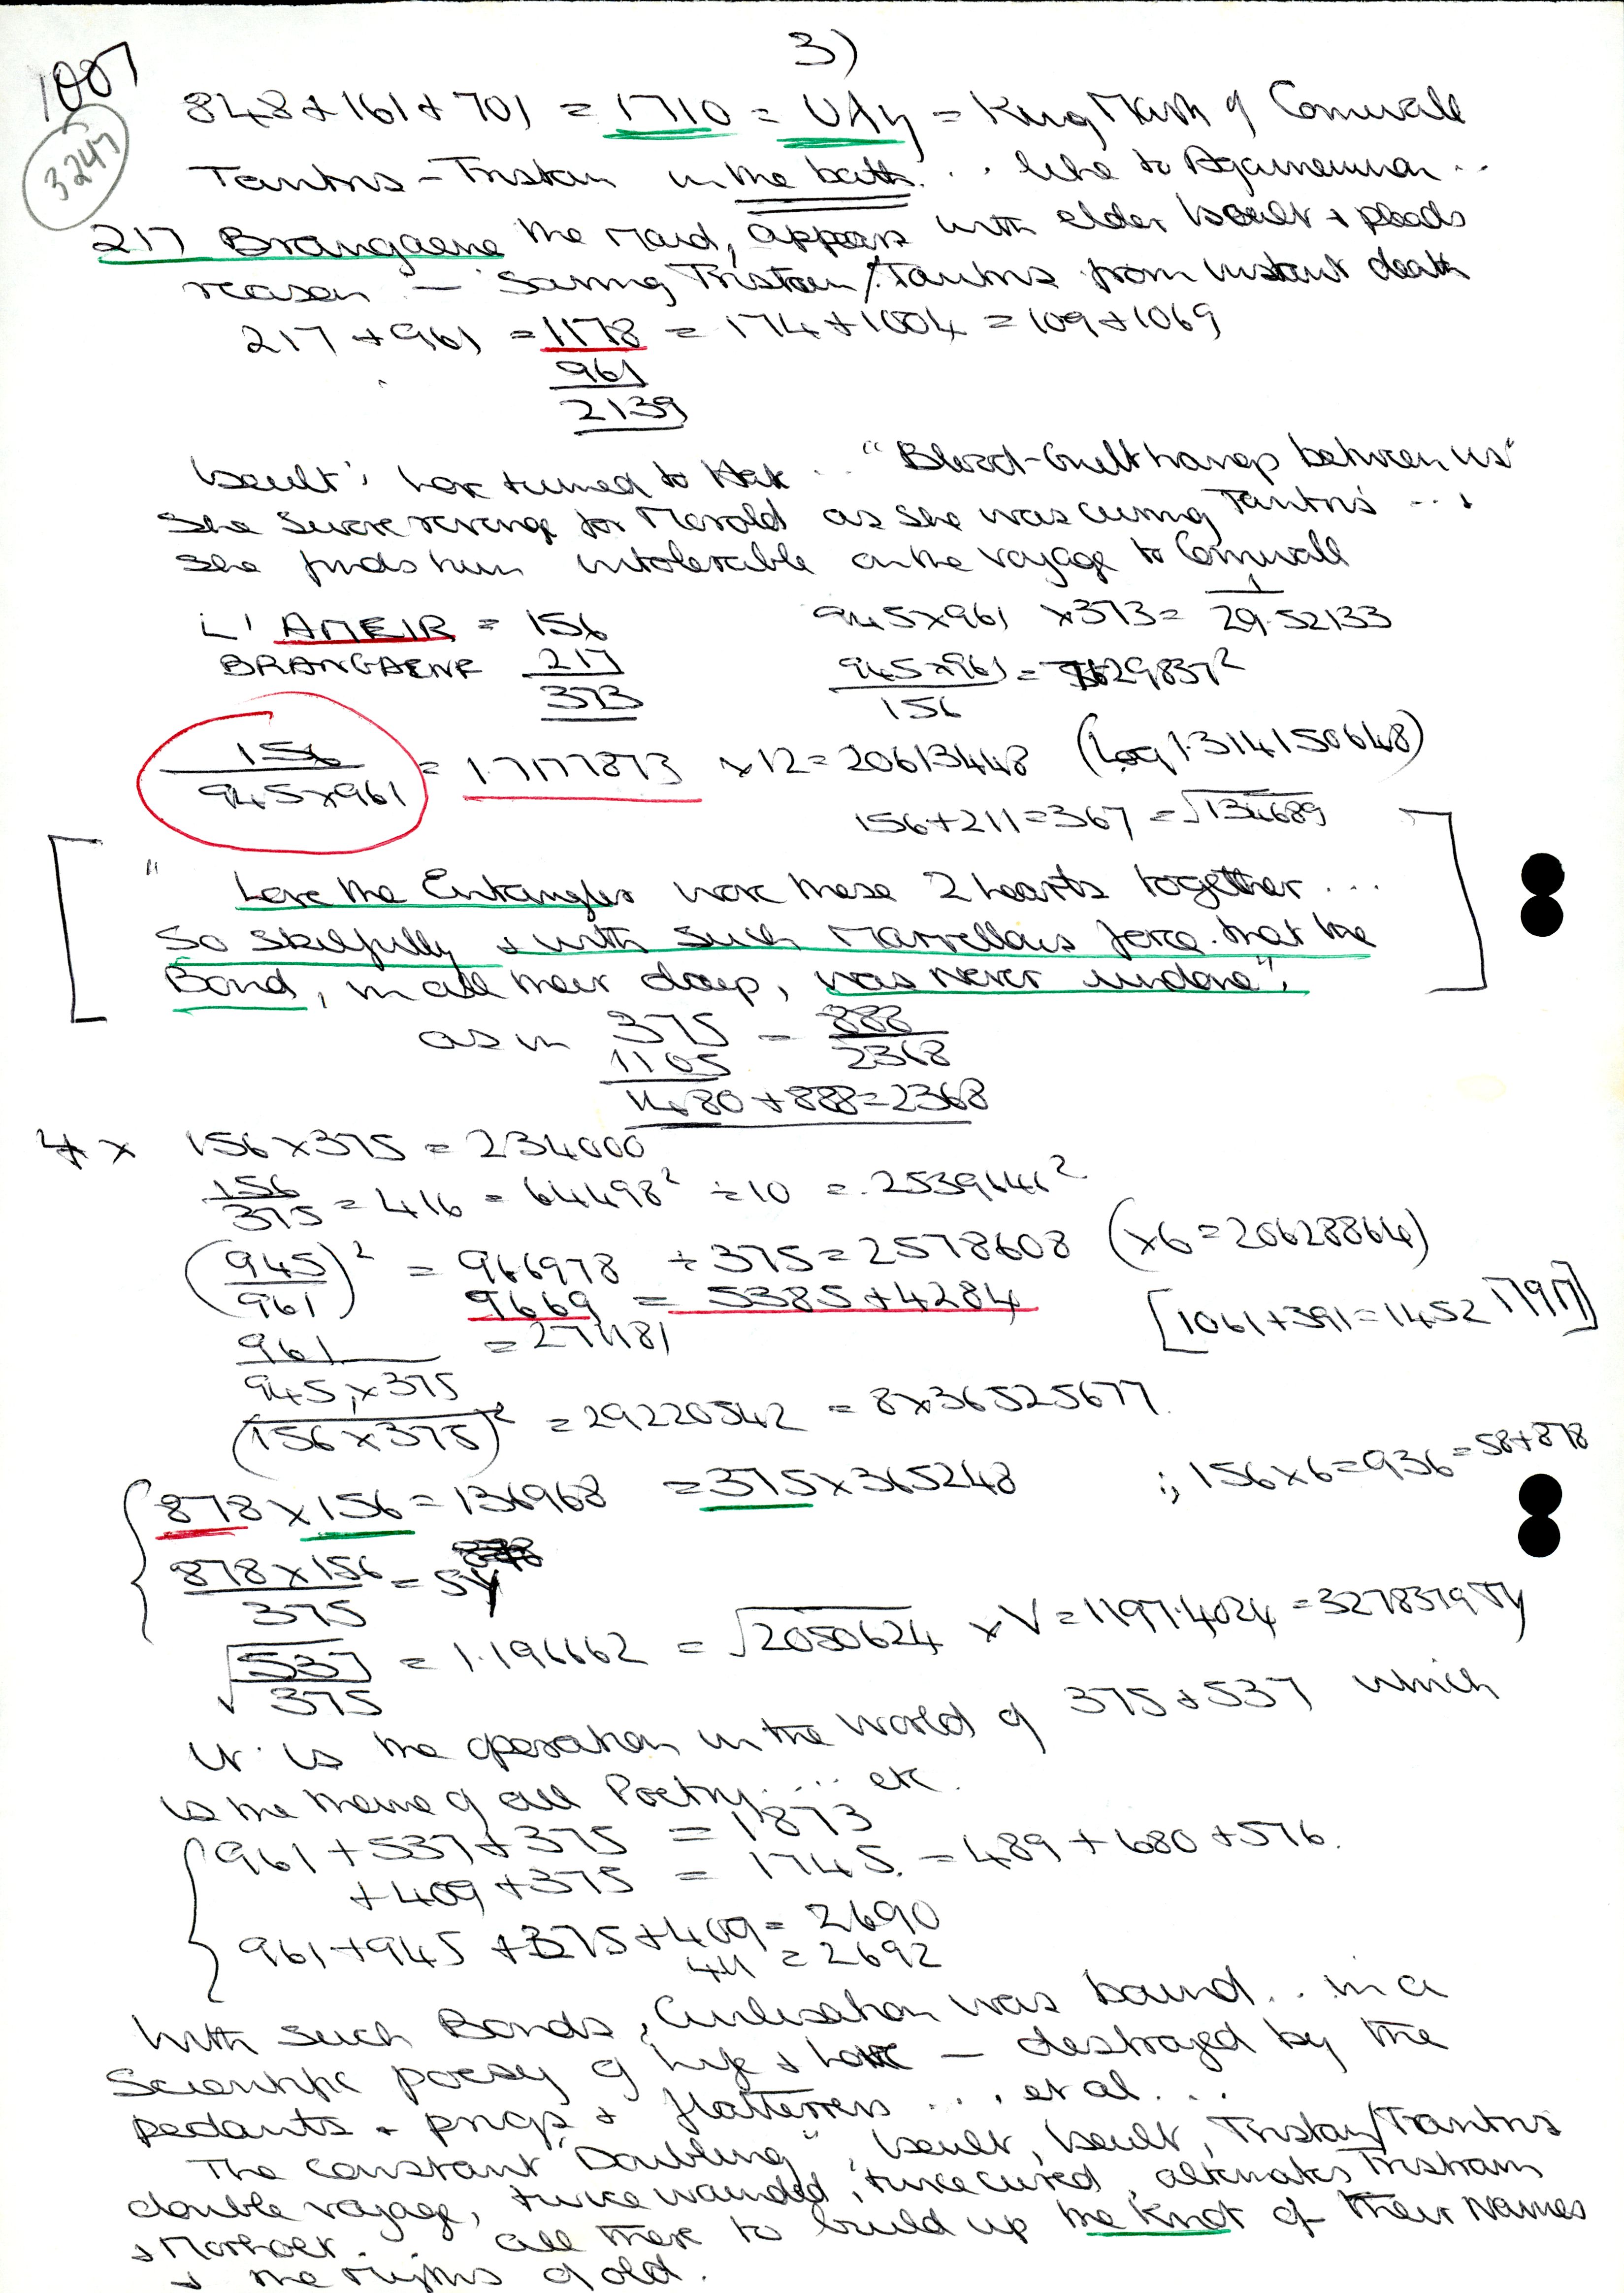 3)
1007
3247
848 + 161 + 701 = 1710 = = King Mark of Cornwall
Tantris - Tristan in the bath... like to Agamemnon..
217 Brangaene the Maid, appears with elder Iseult & pleads
reason — saving Tristan/Tantris from instant death
217 + 961 = 1178 = 174 + 1004 = 109 + 1069
961
2139
Iseult's love turned to Hate .. "Blood-Guilt hangs between us"
She swore revenge for Morold as she was curing Tantris ...
She finds him intolerable on the voyage to Cornwall
L'AMEIR = 156
945 x 961 x 373 = 1/29.52133
BRANGAENE 217
373
945 x 961 / 156 = 29837²
156 / 945 x 961 = 1.7177873 x 12 = 20613448 (Log 1.314150648)
156 + 211 = 367 = √134689
" Love the Entangler wove these 2 hearts together ...
So skilfully & with such Marvellous force that the
Bond, in all their days, was never undone".
as in 375 - 888
1105 2368
1480 + 888 = 2368
4 x 156 x 375 = 234000
156/375 = 416 = 64498² ÷ 10 = .2539646²
(945/961)² = 966978 ÷ 375 = 2578608 (x 6 = 20628864)
9669 = 5385 + 4284
[1061 + 391 = 1452 ]
961 / 945 x 375 = 271181
1 / (156 x 375)² = 29220542 = 8 x 36525677
878 x 156 = 136968 = 375 x 365248 :; 156 x 6 = 936 = 58 + 878
878 x 156 / 375 =
√537/375 = 1.196662 = √2050624 x V = 1197.4024 = 3278379
It is the operation in the world of 375 & 537 which
is the theme of all Poetry.... etc.
961 + 537 + 375 = 1873
+ 409 + 375 = 1745. = 489 + 680 + 576.
961 + 945 + 375 + 409 = 2690
411 = 2692
With such Bonds, Civilisation was bound.. in a
Scientific poesy of life & love — destroyed by the
pedants & prigs & flatterers ... et al...
The constant "Doubling", Iseult, Iseult, Tristan/Tantris
double voyage, twice wounded, twice cured, alternates Tristram
& Morholt.. all there to build up the Knot of their Names
& the rights of old.